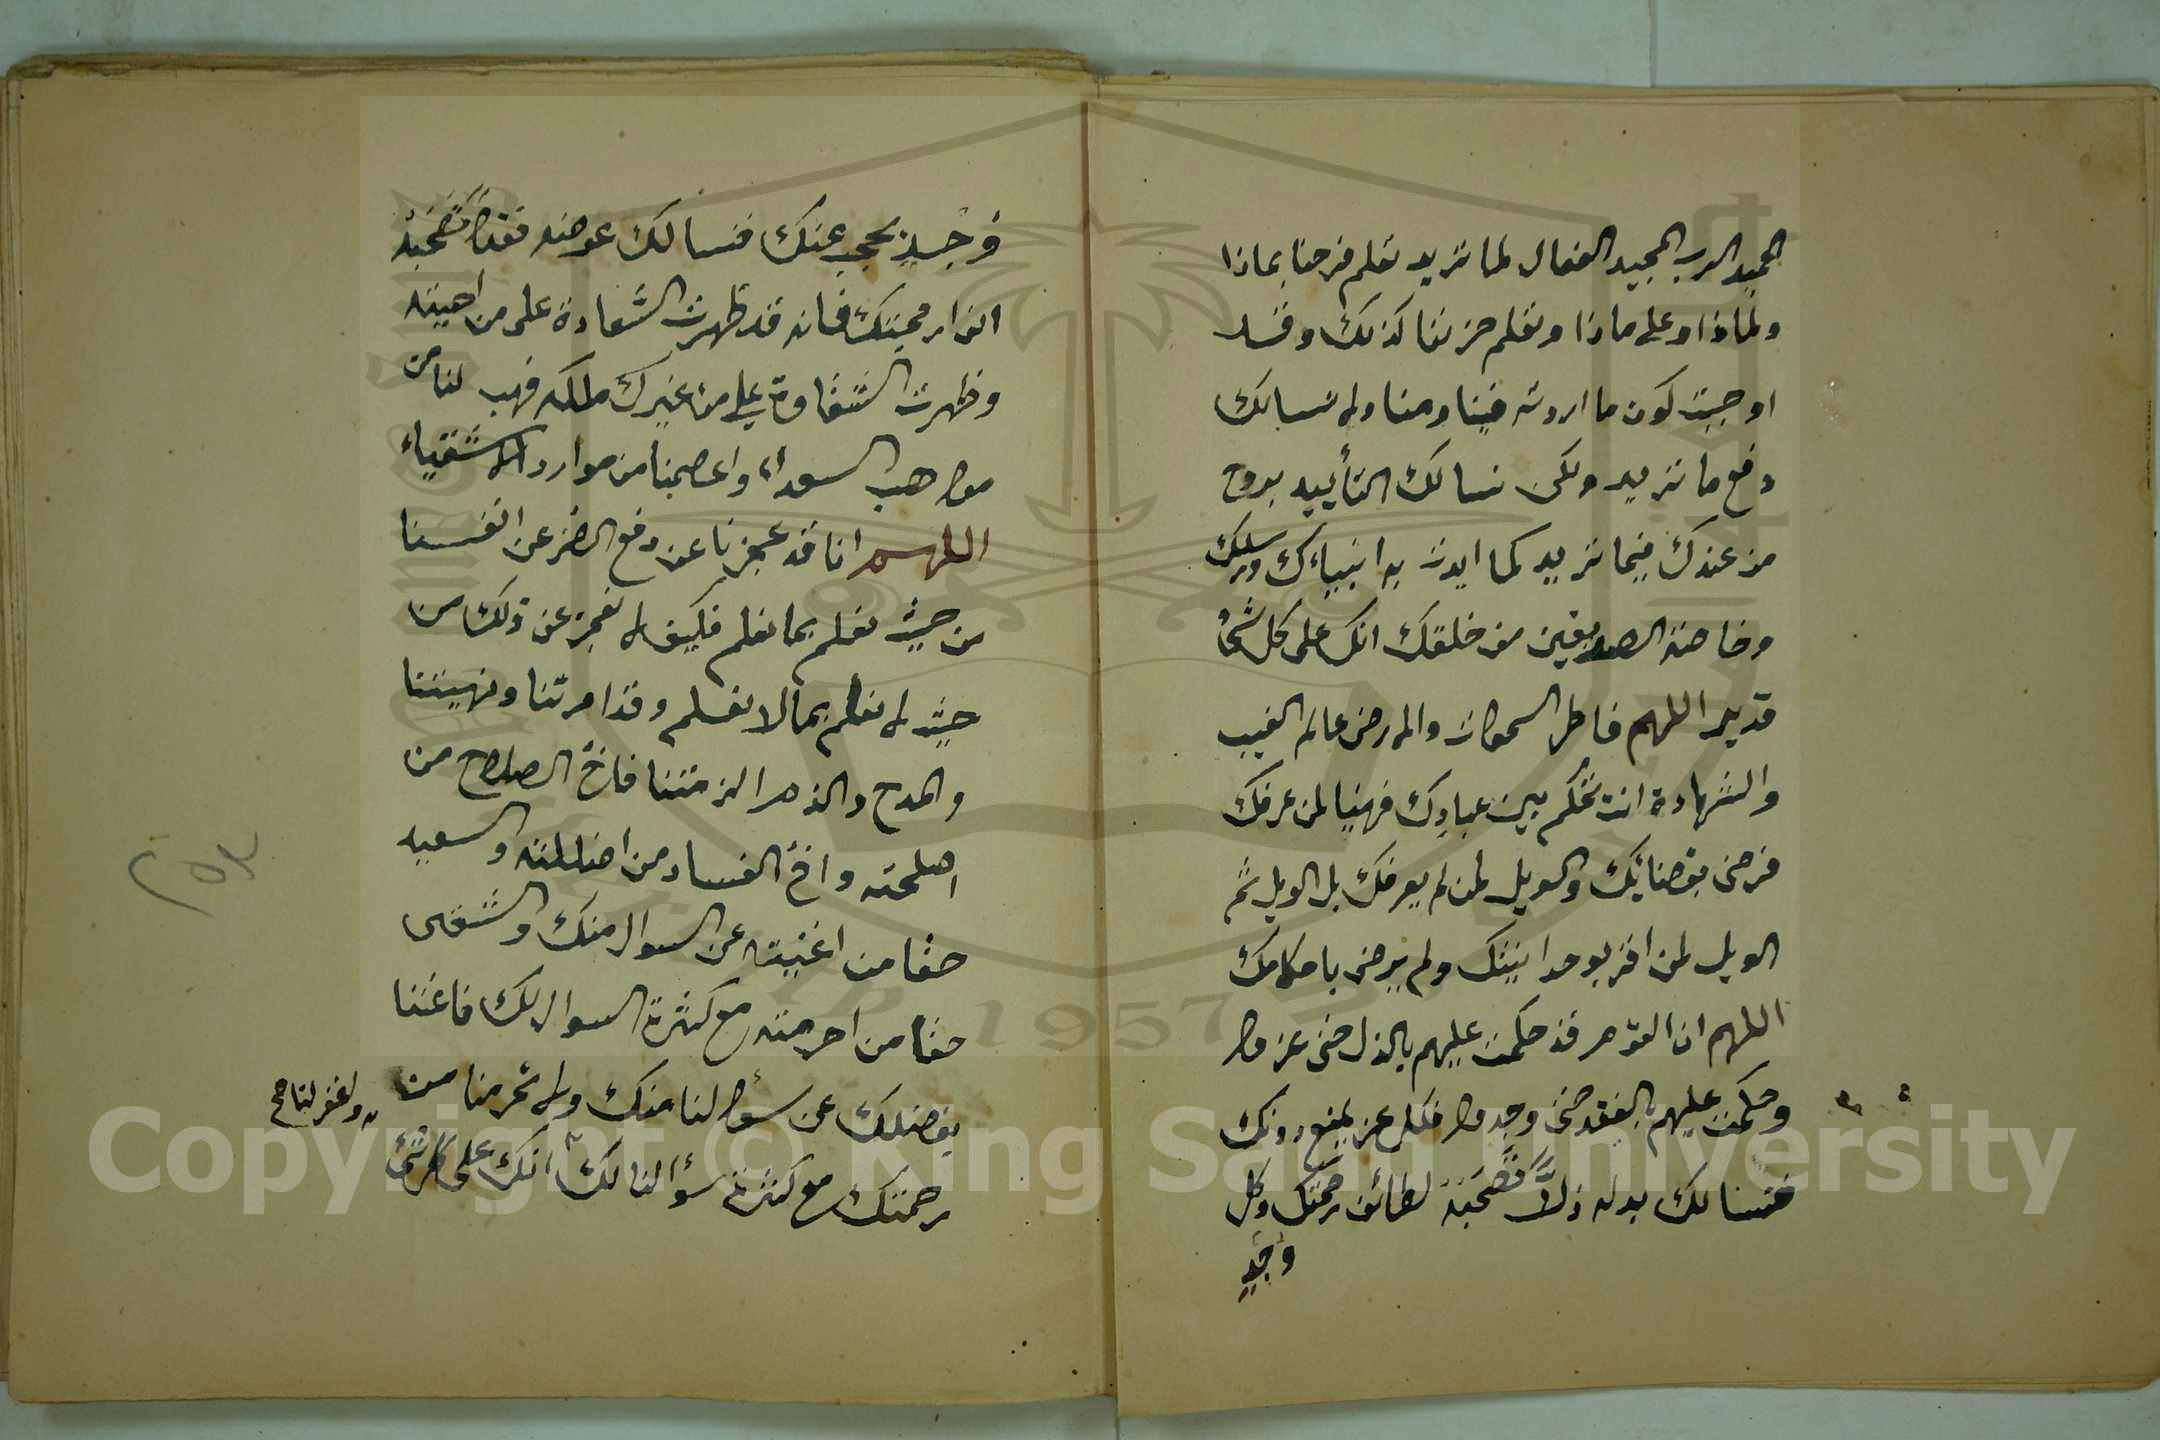 الحميد الرب المجيد الفعال لما تريد تعلم فرحنا بماذا
ولماذا وعلى ماذا وتعلم حزننا كذلك وقد
اوجبت كون ما اردته فينا ومنا ولا نسالك
دفع ما تريد ولكن نسالك التأييد بروح
من عندك فيما تريد كما ايدت به انبياءك ورسلك
وخاصة الصديقين من خلقك انك على كل شئ
قدير اللهم فاطر السموات والارض عالم الغيب
والشهادة انت تحكم بين عبادك فهنيا لمن عرفك
فرضى بقضائك والويل لمن لم يعرفك بل الويل ثم
الويل لمن اقر بوحدانيتك ولم يرض باحكامك
اللهم ان القوم قد حكمت عليهم بالذل حتى عزوا
وحكمت عليهم بالفقد حتى وجدوا فكل عز يمنع دونك
فنسالك بدله ذلاً تصحبه لطائف رحمتك وكل
وجد
وجد يحجب عنك فنسالك عوضه فقدا تصحبه
انوار محبتك فانه قد ظهرت السعادة على من احببته
وظهرت الشقاوة على من غيرك ملكه فهب لنا من
مواهب السعداء واعصمنا من موارد الاشقياء
اللهم انا قد عجزنا عن دفع الضر عن انفسنا
من حيث نعلم بما نعلم فكيف لا نعجز عن ذلك من
حيث لا نعلم بما لا نعلم وقد امرتنا ونهيتنا
والمدح والذم الزمتنا فاخ الصلاح من
اصلحته واخ الفساد من اضللته والسعيد
حقا من اغنيته عن السوال منك والشقى
حقا من احرمته مع كثرة السوال لك فاغننا
بفضلك عن سؤالنا منك ولا تحرمنا من
رحمتك مع كثرة سؤالنا لك انك على كل شئ
واغفر لنا صح
٢٥٢
Copyright © King Saud University
1957